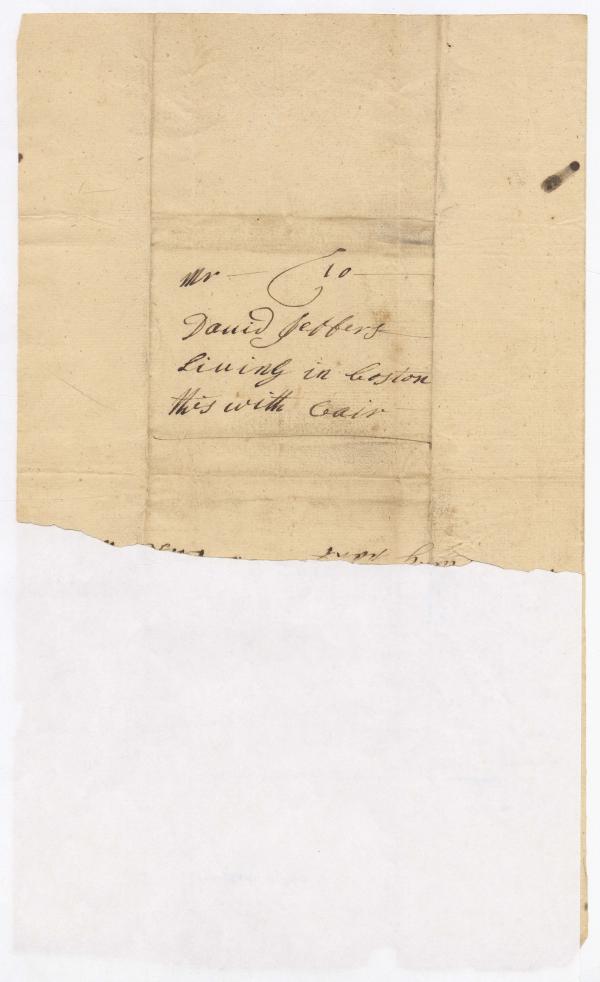 Mr To
David Jeffers
Living in boston
this with Cair